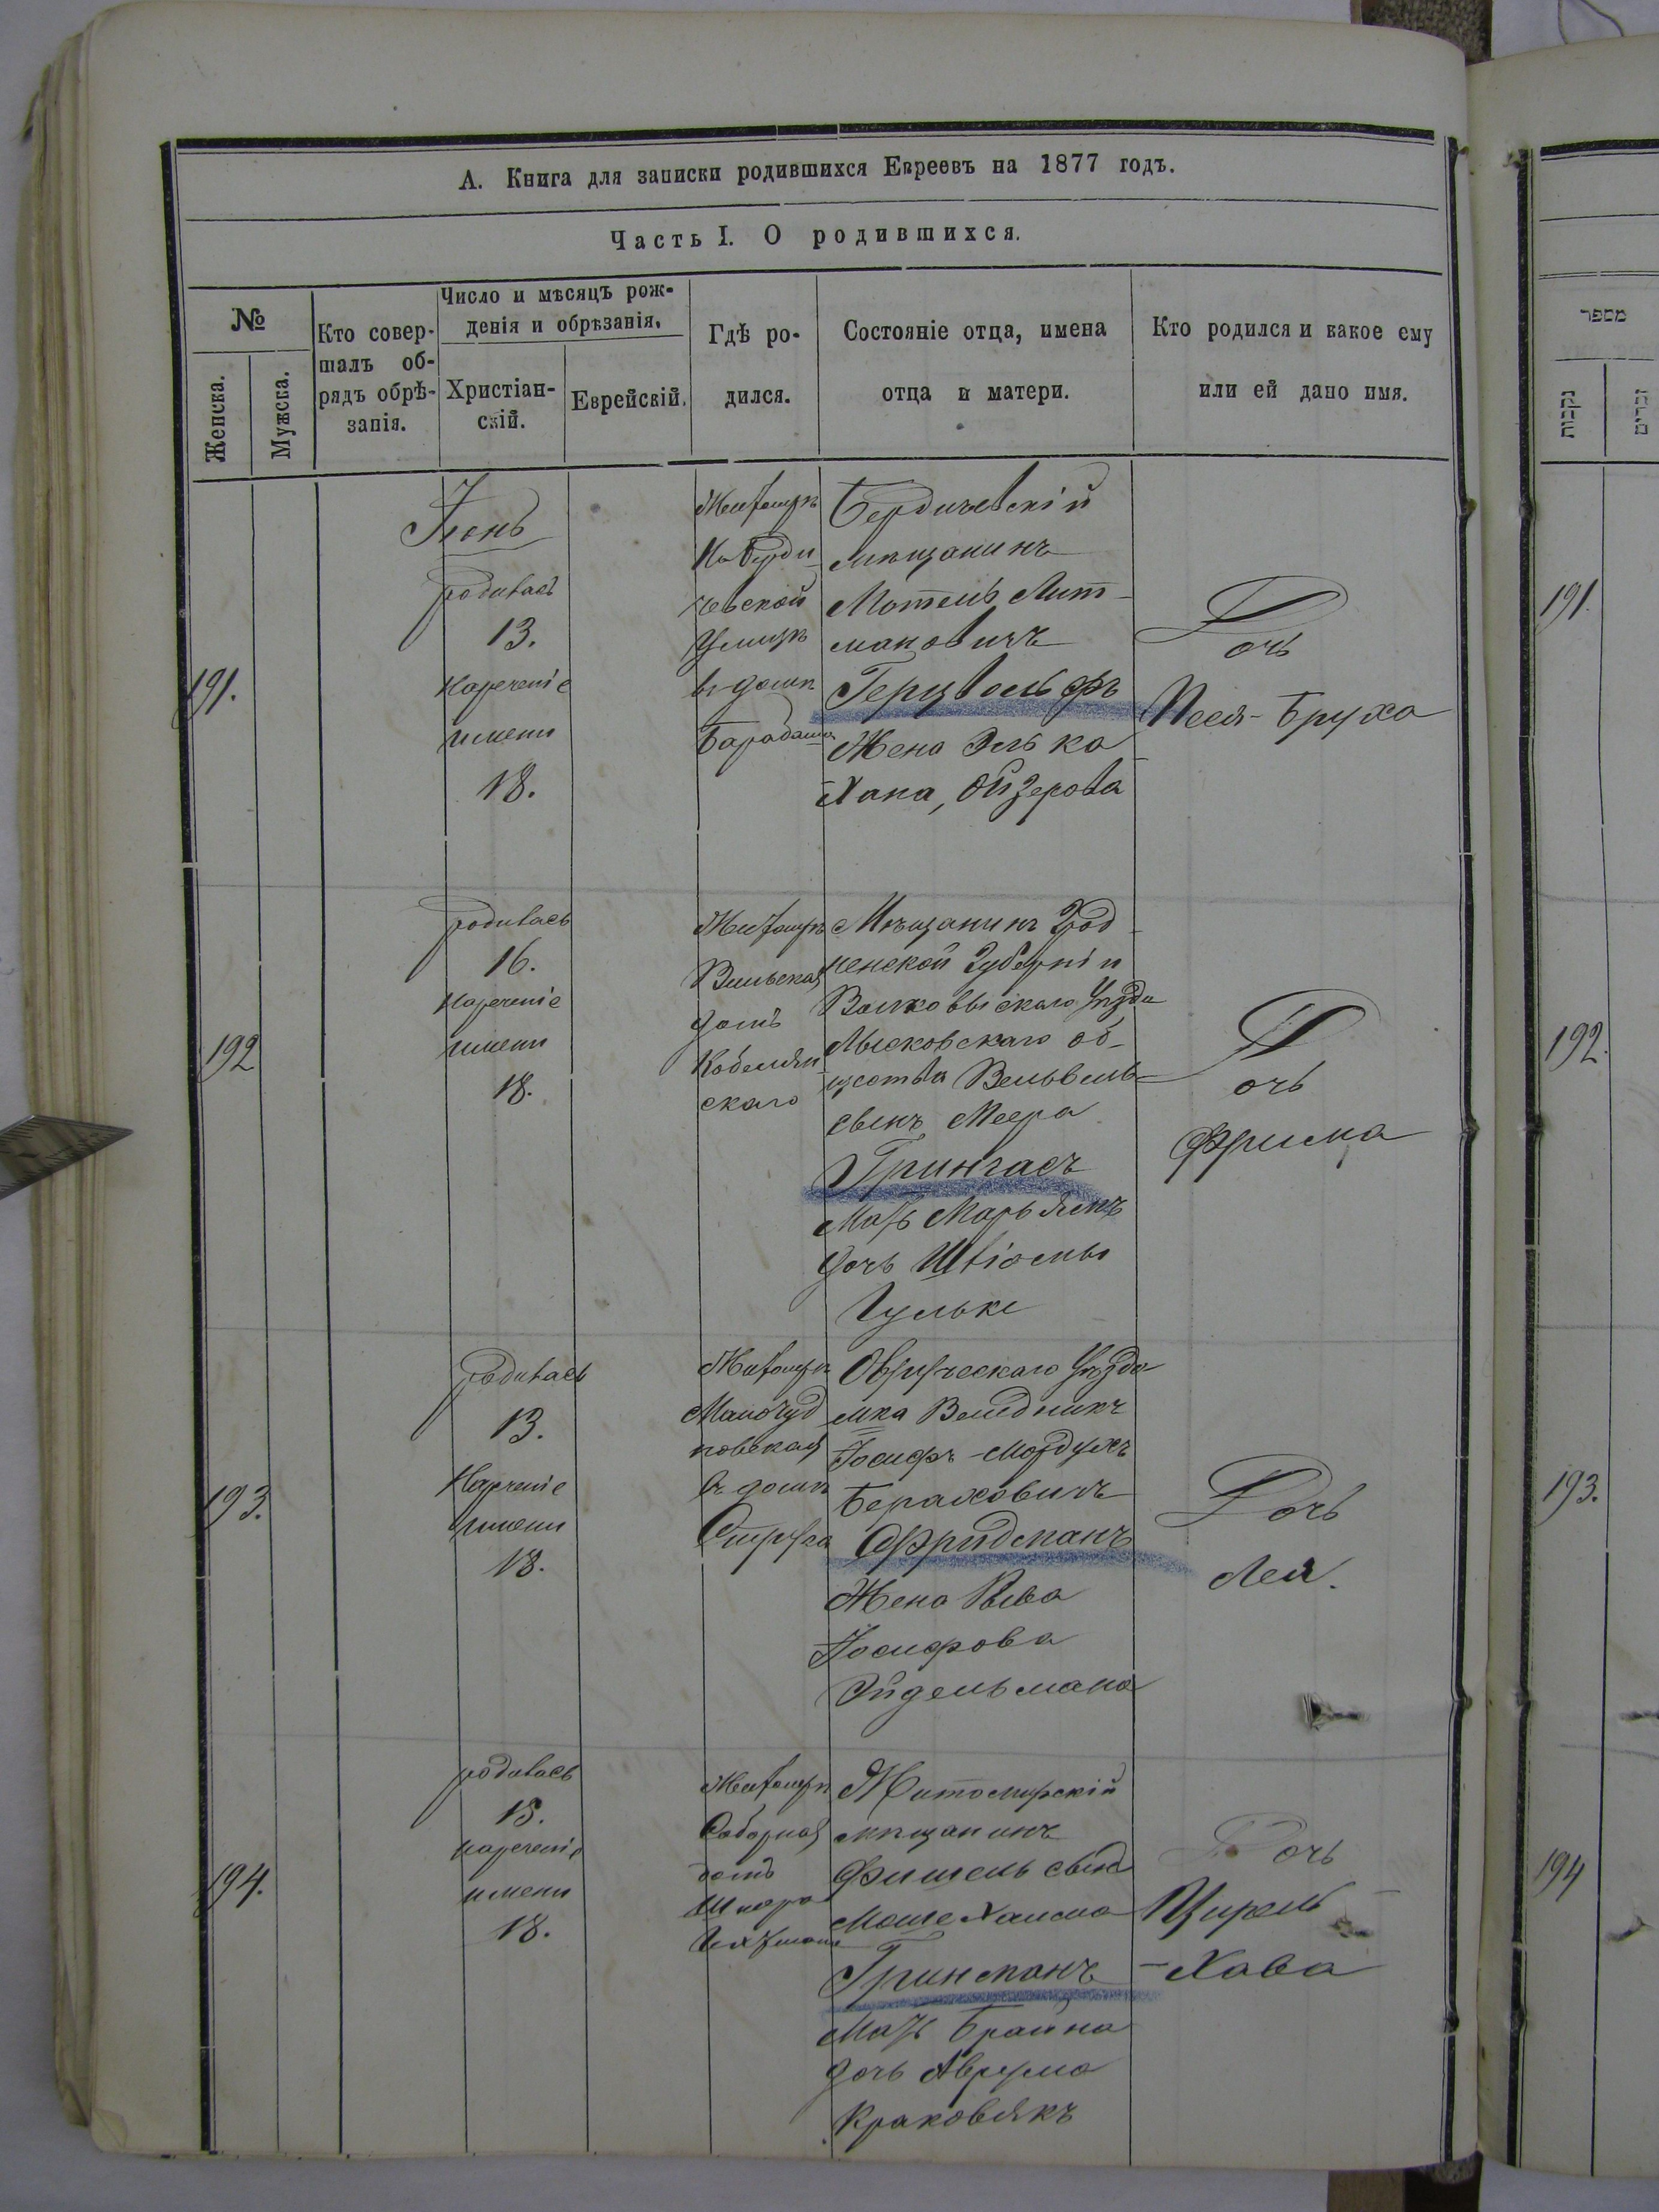 А. Книга для записки родившихся Евреевъ на 1877 годъ.
Часть I. О родившихся.
№
Женска.
Мужска.
Кто совер-
шалъ об-
рядъ обрѣ-
занія.
Число и мѣсяцъ рож-
денія и обрѣзанія.
Христіан-
скій.
Еврейскій.
Гдѣ ро-
дился.
Состояніе отца, имена
отца и матери.
Кто родился и какое ему
или ей дано имя.
191.
Іюнь
родилась
13.
Нареченіе
имени
18.
Житомръ
На Берди
чевской
Улицѣ
въ домѣ
Бердичевскій
мѣщанинъ
Мотель Лит-
мановичъ
Герцвольфъ
Жена Элька
Хана, Ойзерова
Дочь
Песя-Бруха
192
родилась
16.
Нареченіе
имени
18.
Житомръ
Вильская
домъ
Кобелян
скаго
Мѣщанинъ Грод-
ненской Губерніи
Волковыскаго Уѣзда
Лысковскаго об-
щества Вельвель-
сынъ Меера
Грингасъ
Мать Марьямъ
дочь Шліомы
Гульке
Дочь
Фрима
193.
родилась
13.
Нареченіе
имени
18.
Житомръ
Малочуд
новская
въ домѣ
Овручскаго Уѣзда
мка Веледникъ
Іосифъ-Мордухъ
Бераховичъ
Фридманъ
Жена Рыва
Іосифова
Эйдельмана
Дочь
Лея.
194.
родилась
15.
нареченіе
имени
18.
Житомръ
Соборная
домъ
Житомирскій
мѣщанинъ
Фишель сынъ
Моше Хаима
Гринманъ
Мать Брайна
дочь Аврума
Краковякъ
Дочь
Цирель-
-Хава
מספר
נקבות
זכרים
191.
192.
193.
194